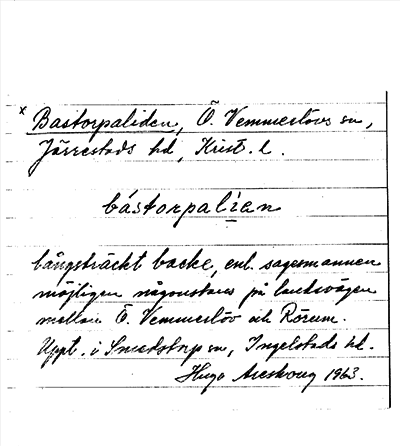 x Bastorpaliden, Ö. Vemmerlövs sn,
Järrestads hd, Krist. l.
båstorpalían
långsträckt backe, enl. sagesmannen
möjligen någonstans på landsvägen
mellan Ö. Vemmerlöv och Rörum.
Uppt. i Smedstorp sn, Ingelstads hd.
Hugo Areskoug 1963.